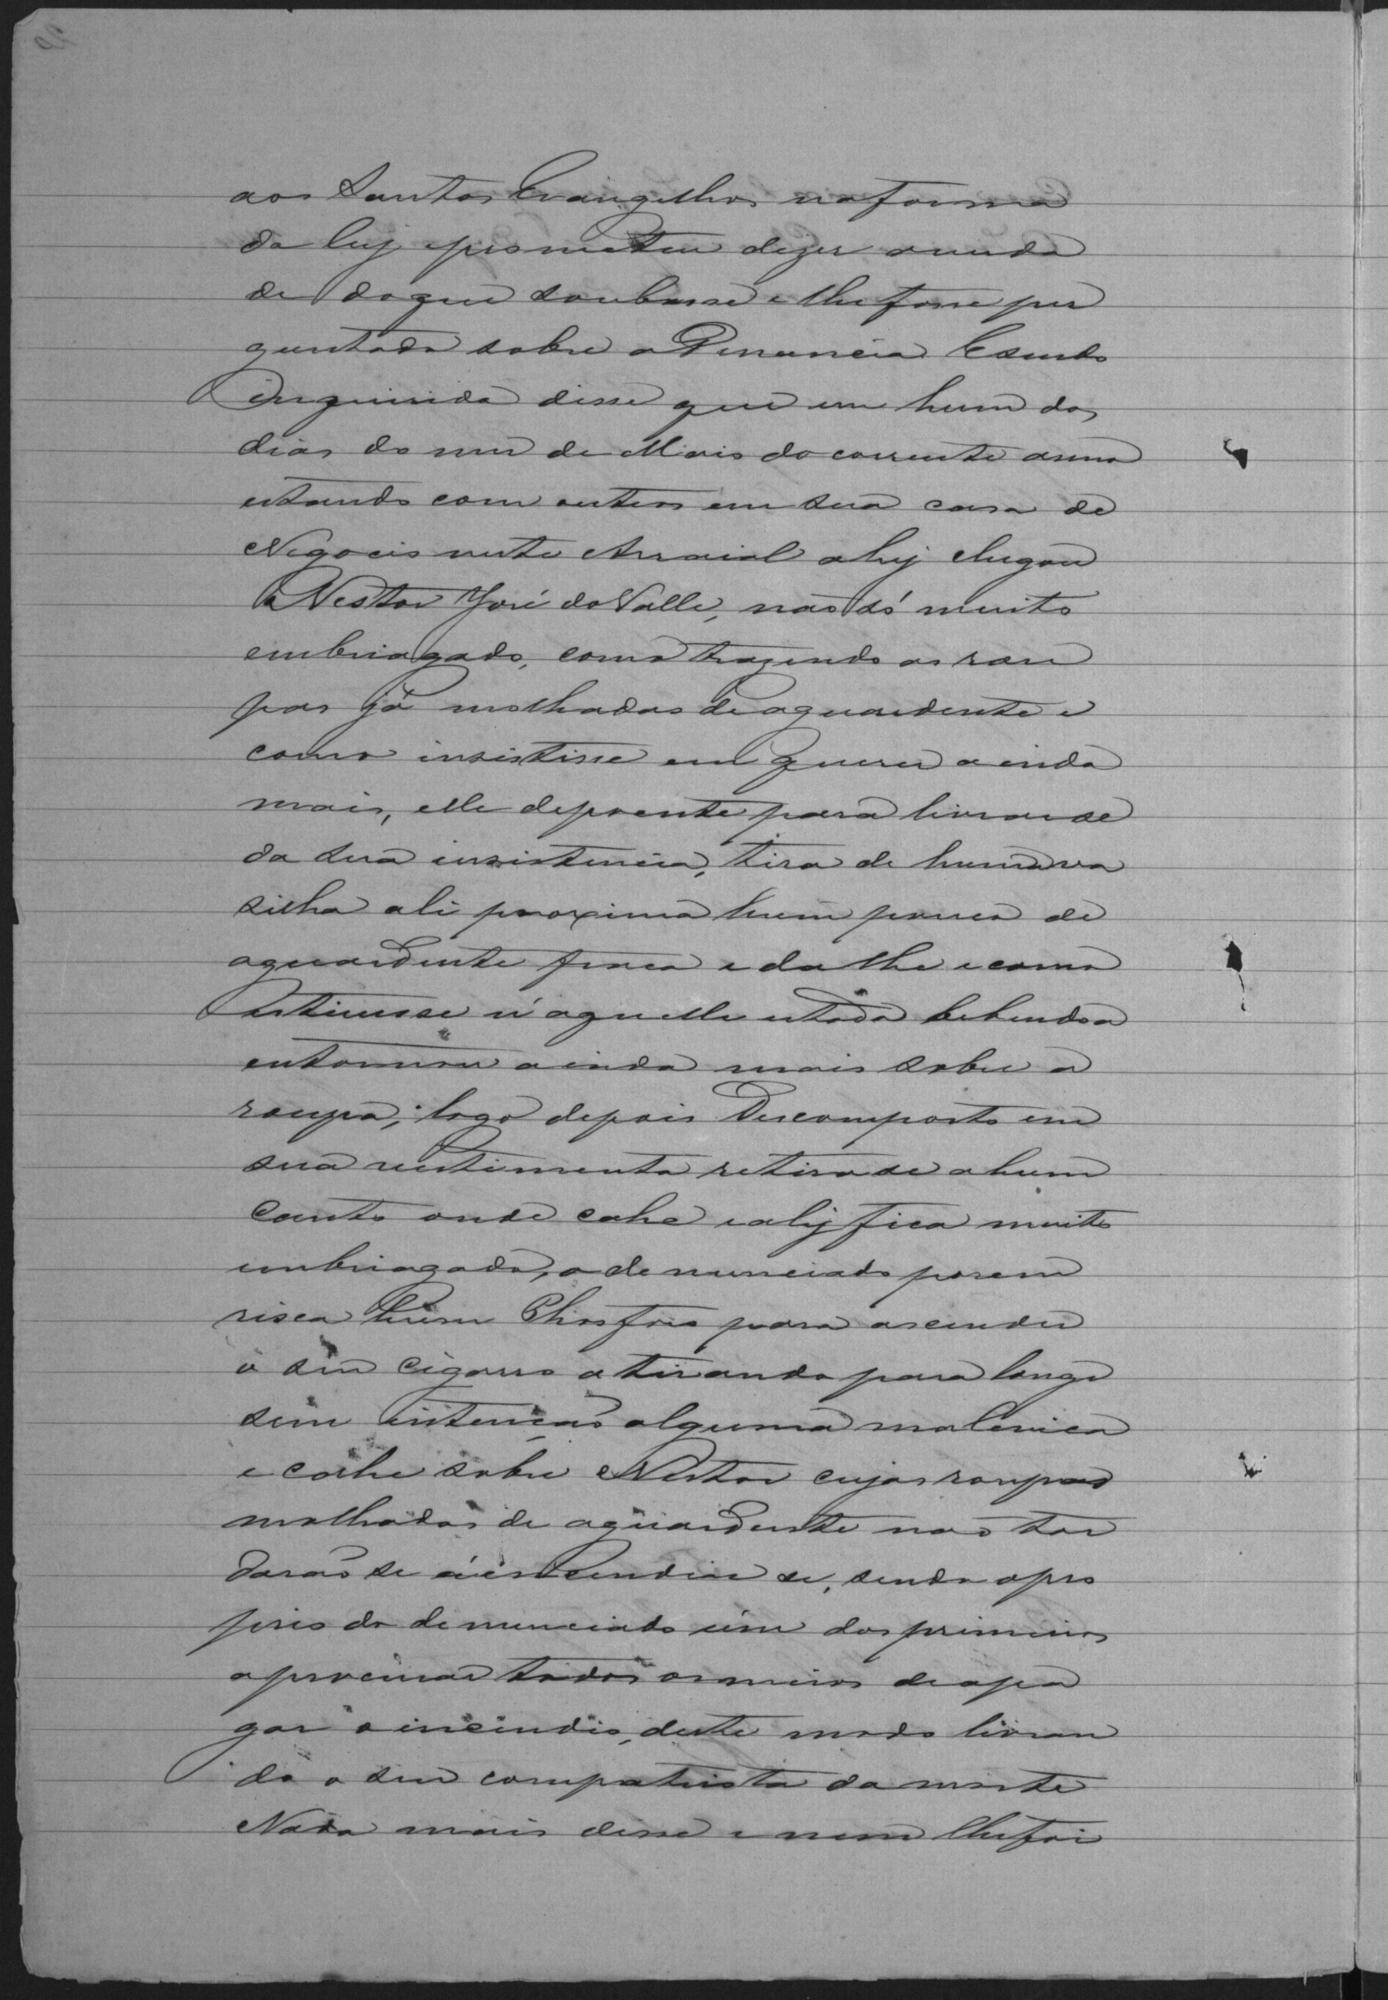 aos Santos Evangelhos na forma
da ley e prometeu dizer a verda
de do que soubesse e lhe fosse per
guntado sobre a Denuncia E sendo
inquirida disse que em hum dos
dias do mez de Maio do corrente anno
estando com outros em sua casa de
Negocio neste Arraial ahy chegou
Nestor José do Valle, não só muito
embriagado, como trazendo as rou
pas já molhadas de aguardente e
como insistisse em querer ainda
mais, elle depoente para livrar-se
da sua insistencia, tira de huma va
silha ali proxima hum pouco de
aguardente fraca e da lhe e como
estivesse n'aquelle estado bebendo a
entornou ainda mais sobre a
roupa; logo depois Descomposto em
sua vestimenta retira se a hum
canto onde cahe e aly fica muito
embriagado, o denunciado porem
risca hum Phosforo para ascender
o seu cigarro atirando para longe
sem intenção alguma malevica
e cahe sobre Nestor cujas roupas
molhadas de aguardente não tar
darão se a incendiar se, sendo o pro
prio do denunciado um dos primeiros
a procurar todos os meios de apa
gar o incendio, deste modo livran
do o seu compatriota da morte
Nada mais disse e nem lhe foi